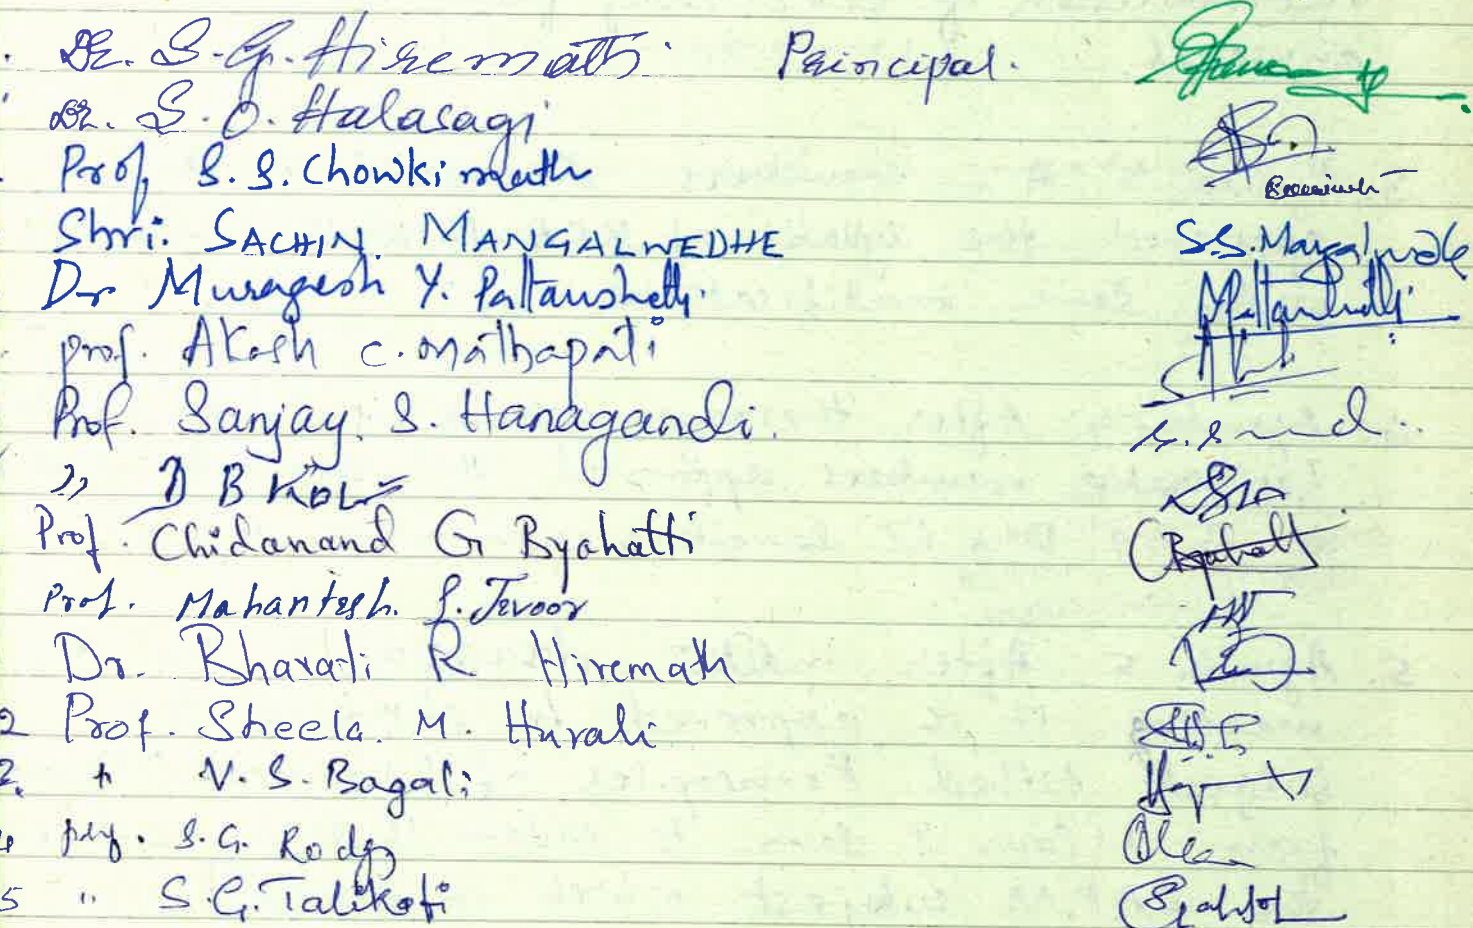 Dr. S. G. Hiremath Principal.
Dr. S. O. Halasagi
Prof. S. S. Chowkimath
Shri. SACHIN. MANGALWEDHE S.S. Mangalwade
Dr Muragesh Y. Pattanshetti. Pattanshetti
prof. Akash C. mathapati
Prof. Sanjay. S. Hanagandi.
" D B KOLI
Prof. Chidanand G Byahatti C Byahatti
Prof. Mahantesh. S. Jevoor
Dr. Bharati R Hiremath
2 Prof. Sheela. M. Hurali
V. S. Bagali
prof. S. G. Rodgi
5 " S. G. Talikoti